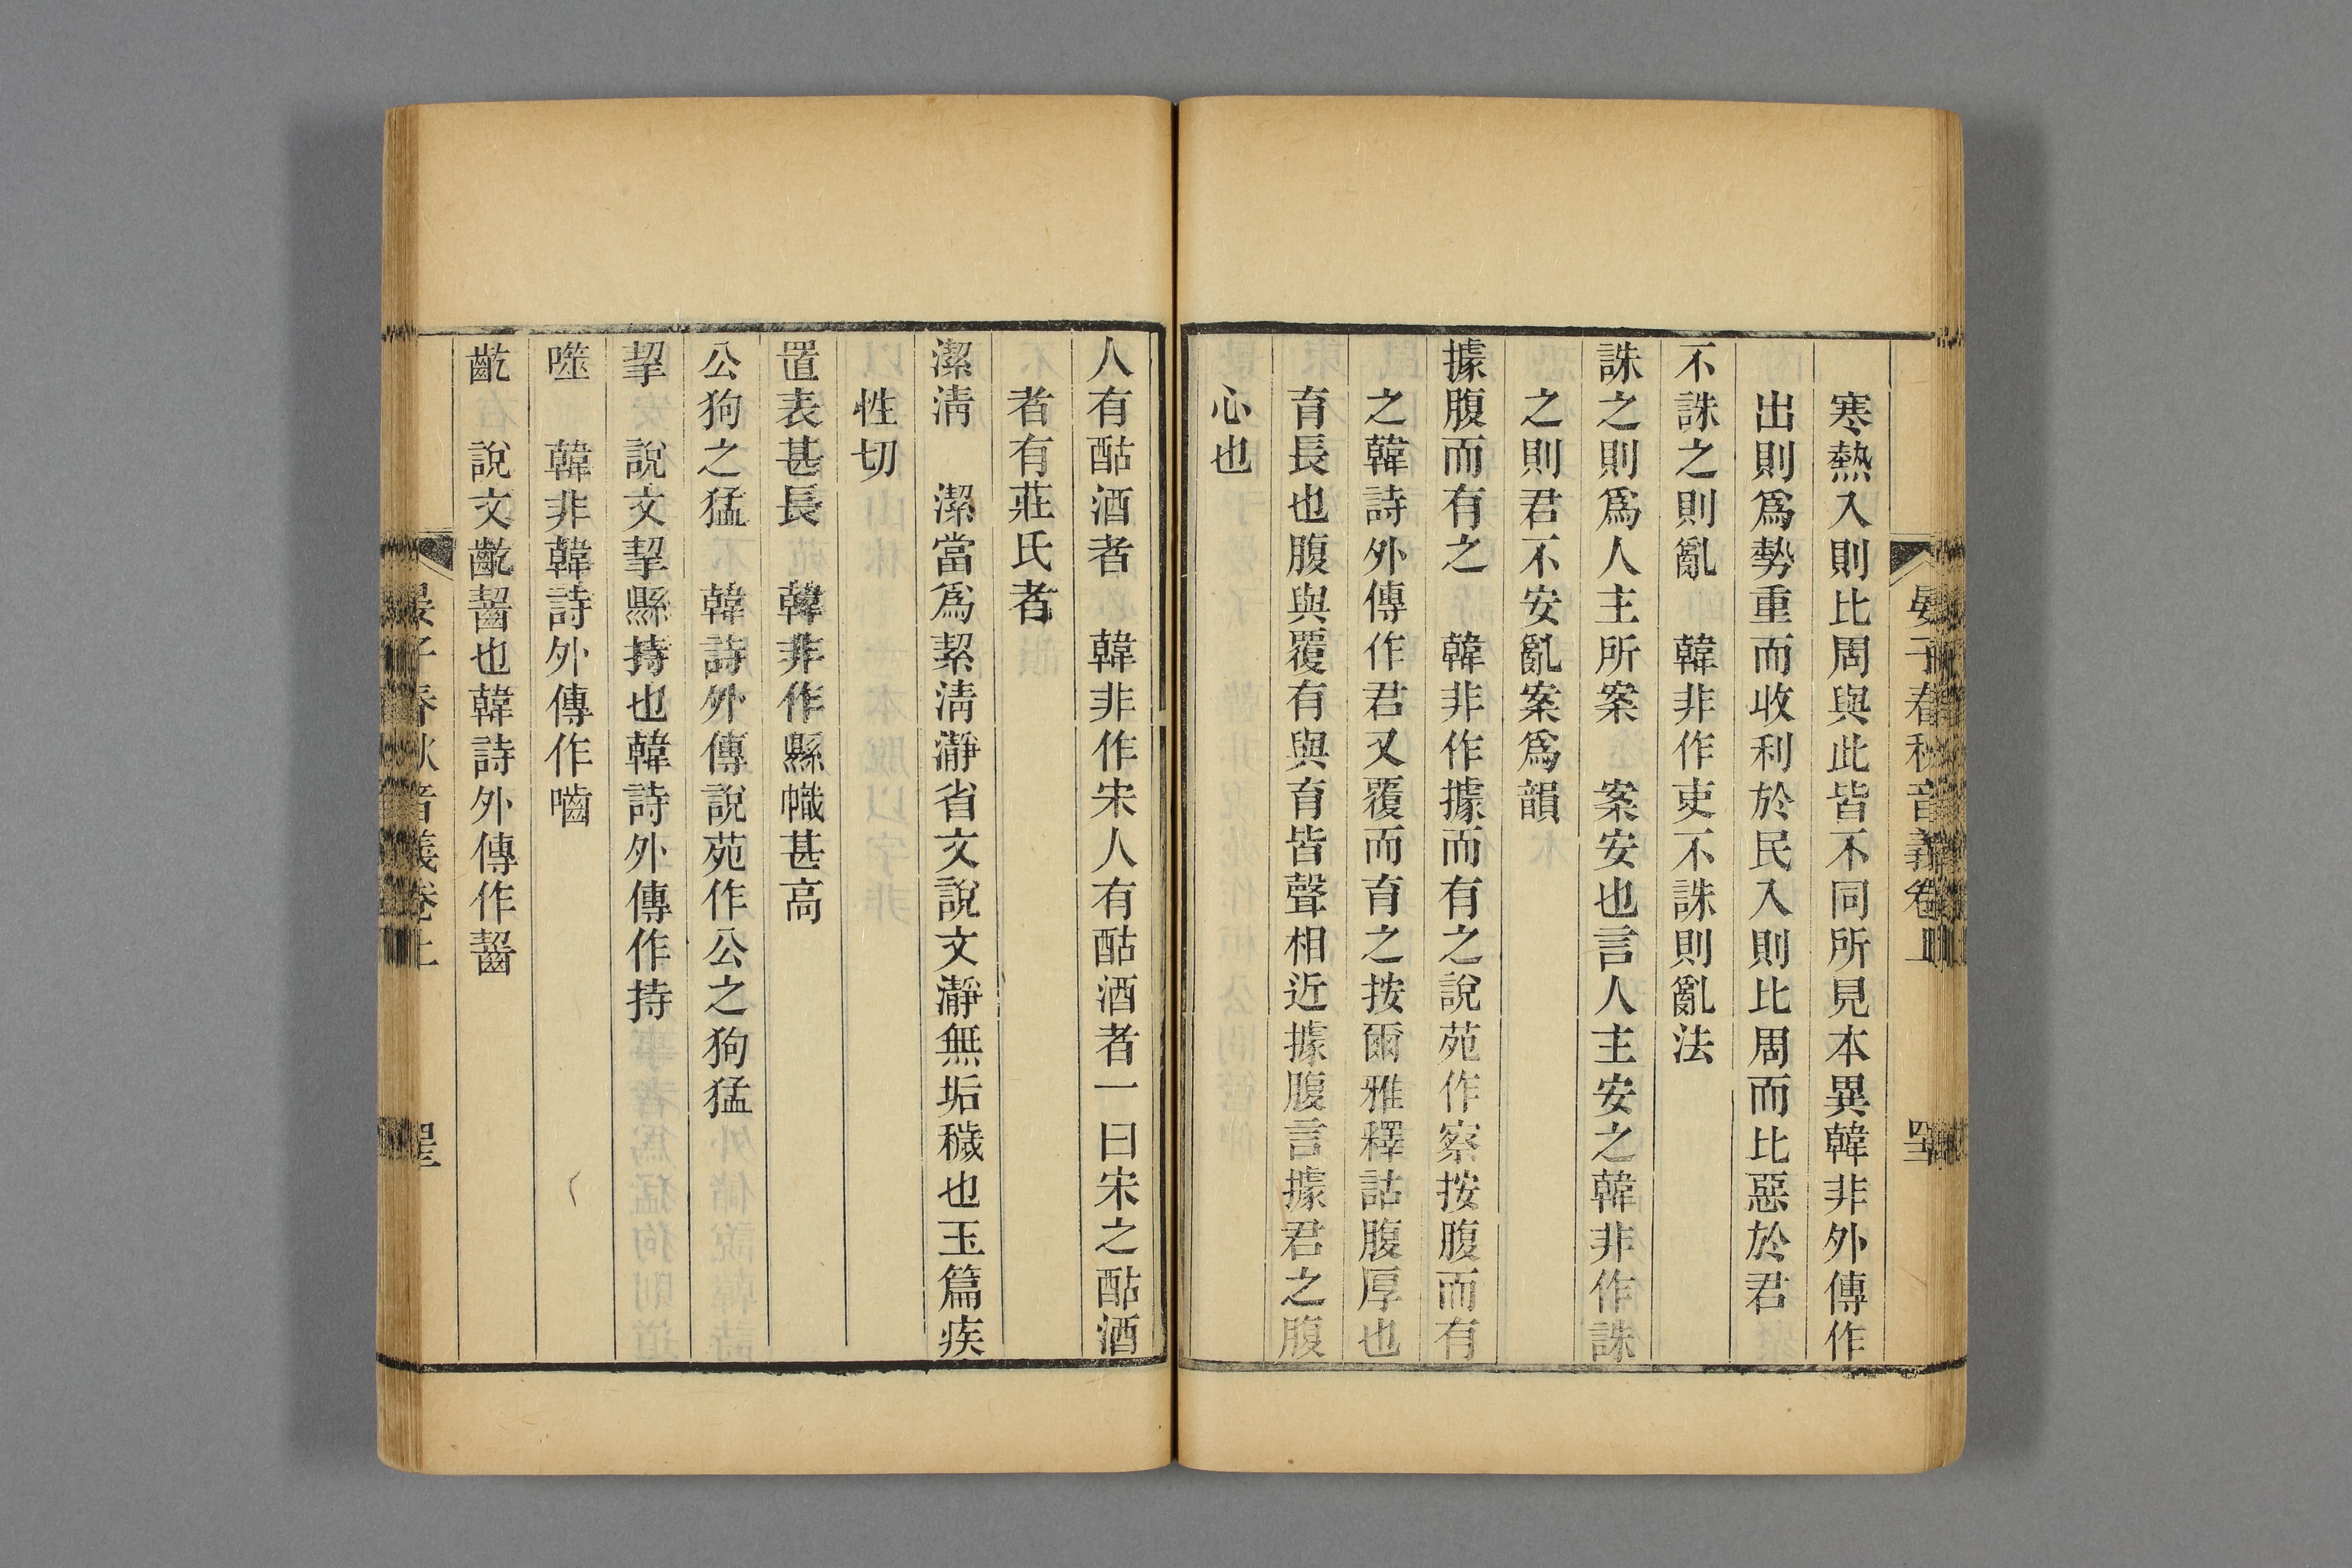 寒熱入則比周與此皆不同所見本異韓非外傳作
出則爲勢重而收利於民入則比周而比惡於君
不誅之則亂　韓非作吏不誅則亂法
誅之則爲人主所案　案安也言人主安之韓非作誅
之則君不安亂案爲韻
據腹而有之　韓非作據而有之說苑作察按腹而有
之韓詩外傳作君又覆而育之按爾雅釋詁腹厚也
育長也腹與覆有與育皆聲相近據腹言據君之腹
心也
人有酤酒者　韓非作宋人有酤酒者一曰宋之酤酒
者有莊氏者
潔淸　潔當爲絜淸瀞省文說文瀞無垢穢也玉篇疾
性切
置表甚長　韓非作縣幟甚高
公狗之猛　韓詩外傳說苑作公之狗猛
挈　說文挈縣持也韓詩外傳作持
噬　韓非韓詩外傳作嚙
齕　說文齕齧也韓詩外傳作齧
晏子春秋音義卷上